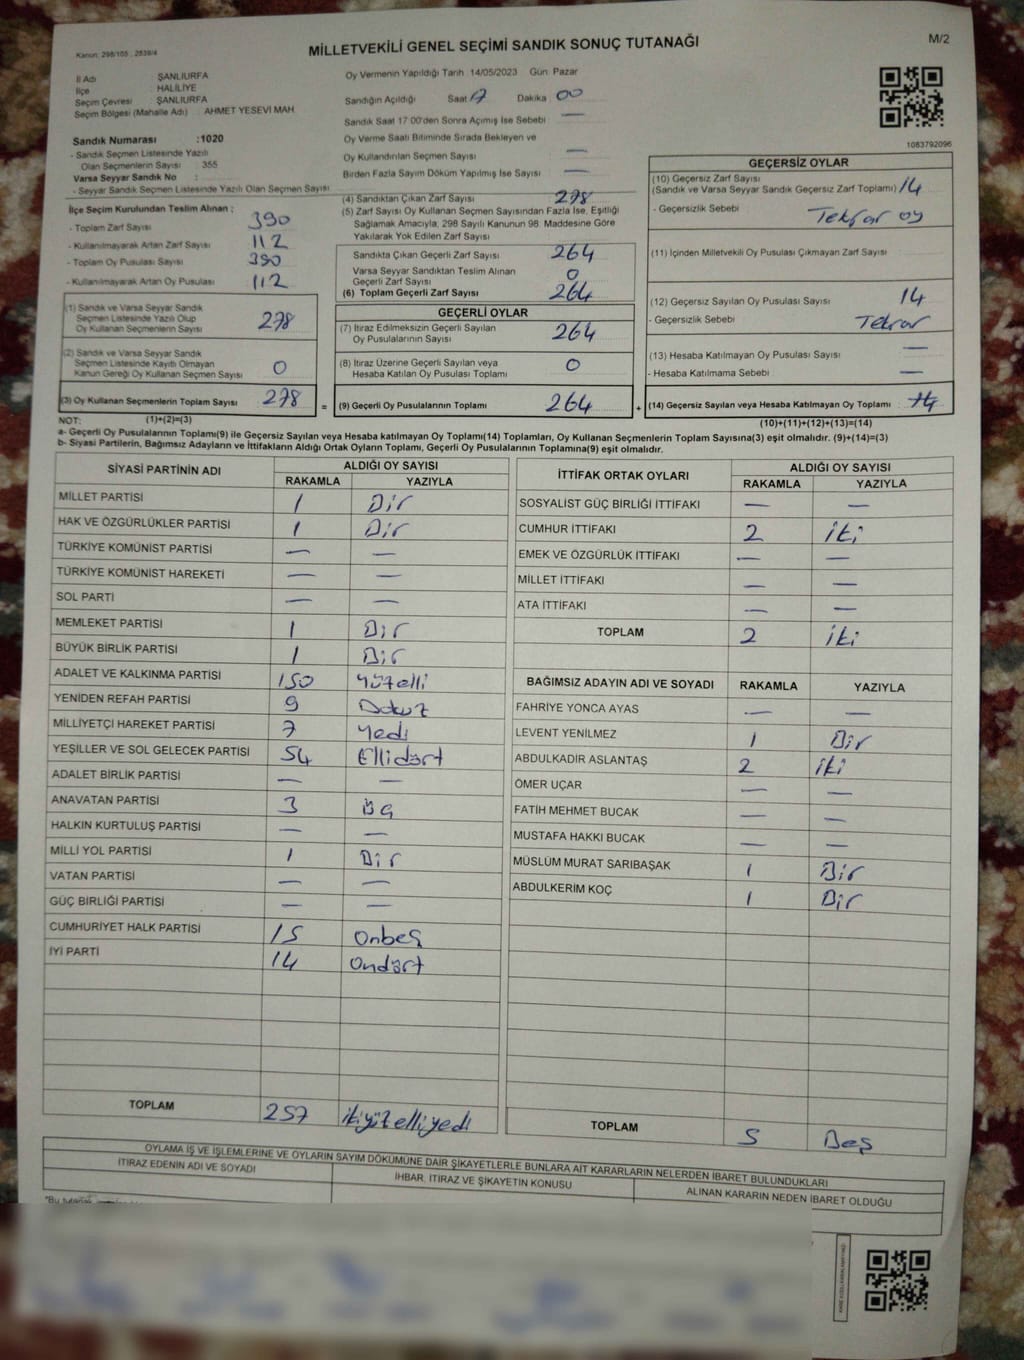 Kanun: 298/105 , 2839/4
MİLLETVEKİLİ GENEL SEÇİMİ SANDIK SONUÇ TUTANAĞI
M/2
İl Adı ŞANLIURFA
İlçe HALİLİYE
Seçim Çevresi ŞANLIURFA
Seçim Bölgesi (Mahalle Adı) : AHMET YESEVİ MAH.
Sandık Numarası :1020
- Sandık Seçmen Listesinde Yazılı
Olan Seçmenlerin Sayısı : 355
Varsa Seyyar Sandık No :
- Seyyar Sandık Seçmen Listesinde Yazılı Olan Seçmen Sayısı
Oy Vermenin Yapıldığı Tarih :14/05/2023 Gün: Pazar
Sandığın Açıldığı Saat 17 Dakika 00
Sandık Saat 17:00'den Sonra Açılmış İse Sebebi —
Oy Verme Saati Bitiminde Sırada Bekleyen ve
Oy Kullandırılan Seçmen Sayısı —
Birden Fazla Sayım Döküm Yapılmış İse Sayısı —
1083792096
İlçe Seçim Kurulundan Teslim Alınan ;
- Toplam Zarf Sayısı 390
- Kullanılmayarak Artan Zarf Sayısı 112
- Toplam Oy Pusulası Sayısı 390
- Kullanılmayarak Artan Oy Pusulası 112
(1) Sandık ve Varsa Seyyar Sandık
Seçmen Listesinde Yazılı Olup
Oy Kullanan Seçmenlerin Sayısı 278
(2) Sandık ve Varsa Seyyar Sandık
Seçmen Listesinde Kayıtlı Olmayan
Kanun Gereği Oy Kullanan Seçmen Sayısı 0
(3) Oy Kullanan Seçmenlerin Toplam Sayısı 278
(1)+(2)=(3)
(4) Sandıktan Çıkan Zarf Sayısı 278
(5) Zarf Sayısı Oy Kullanan Seçmen Sayısından Fazla İse, Eşitliği
Sağlamak Amacıyla, 298 Sayılı Kanunun 98. Maddesine Göre
Yakılarak Yok Edilen Zarf Sayısı
Sandıkta Çıkan Geçerli Zarf Sayısı 264
Varsa Seyyar Sandıktan Teslim Alınan
Geçerli Zarf Sayısı 0
(6) Toplam Geçerli Zarf Sayısı 264
GEÇERLİ OYLAR
(7) İtiraz Edilmeksizin Geçerli Sayılan
Oy Pusulalarının Sayısı 264
(8) İtiraz Üzerine Geçerli Sayılan veya
Hesaba Katılan Oy Pusulası Toplamı 0
= (9) Geçerli Oy Pusulalarının Toplamı 264
GEÇERSİZ OYLAR
(10) Geçersiz Zarf Sayısı
(Sandık ve Varsa Seyyar Sandık Geçersiz Zarf Toplamı) 14
- Geçersizlik Sebebi Tekrar oy
(11) İçinden Milletvekili Oy Pusulası Çıkmayan Zarf Sayısı
(12) Geçersiz Sayılan Oy Pusulası Sayısı 14
- Geçersizlik Sebebi Tekrar
(13) Hesaba Katılmayan Oy Pusulası Sayısı —
- Hesaba Katılmama Sebebi —
+ (14) Geçersiz Sayılan veya Hesaba Katılmayan Oy Toplamı 14
(10)+(11)+(12)+(13)=(14)
NOT:
a- Geçerli Oy Pusulalarının Toplamı(9) ile Geçersiz Sayılan veya Hesaba katılmayan Oy Toplamı(14) Toplamları, Oy Kullanan Seçmenlerin Toplam Sayısına(3) eşit olmalıdır. (9)+(14)=(3)
b- Siyasi Partilerin, Bağımsız Adayların ve İttifakların Aldığı Ortak Oyların Toplamı, Geçerli Oy Pusulalarının Toplamına(9) eşit olmalıdır.
SİYASİ PARTİNİN ADI ALDIĞI OY SAYISI
RAKAMLA YAZIYLA
MİLLET PARTİSİ 1 Bir
HAK VE ÖZGÜRLÜKLER PARTİSİ 1 Bir
TÜRKİYE KOMÜNİST PARTİSİ — —
TÜRKİYE KOMÜNİST HAREKETİ — —
SOL PARTİ — —
MEMLEKET PARTİSİ 1 Bir
BÜYÜK BİRLİK PARTİSİ 1 Bir
ADALET VE KALKINMA PARTİSİ 150 Yüzelli
YENİDEN REFAH PARTİSİ 9 Dokuz
MİLLİYETÇİ HAREKET PARTİSİ 7 Yedi
YEŞİLLER VE SOL GELECEK PARTİSİ 54 Ellidört
ADALET BİRLİK PARTİSİ — —
ANAVATAN PARTİSİ 3 üç
HALKIN KURTULUŞ PARTİSİ — —
MİLLİ YOL PARTİSİ 1 Bir
VATAN PARTİSİ — —
GÜÇ BİRLİĞİ PARTİSİ — —
CUMHURİYET HALK PARTİSİ 15 Onbeş
İYİ PARTİ 14 Ondört
TOPLAM 257 ikiyüzelliyedi
İTTİFAK ORTAK OYLARI ALDIĞI OY SAYISI
RAKAMLA YAZIYLA
SOSYALİST GÜÇ BİRLİĞİ İTTİFAKI — —
CUMHUR İTTİFAKI 2 iki
EMEK VE ÖZGÜRLÜK İTTİFAKI — —
MİLLET İTTİFAKI — —
ATA İTTİFAKI — —
TOPLAM 2 iki
BAĞIMSIZ ADAYIN ADI VE SOYADI RAKAMLA YAZIYLA
FAHRİYE YONCA AYAS — —
LEVENT YENİLMEZ 1 Bir
ABDULKADİR ASLANTAŞ 2 iki
ÖMER UÇAR — —
FATİH MEHMET BUCAK — —
MUSTAFA HAKKI BUCAK — —
MÜSLÜM MURAT SARIBAŞAK 1 Bir
ABDULKERİM KOÇ 1 Bir
TOPLAM 5 Beş
OYLAMA İŞ VE İŞLEMLERİNE VE OYLARIN SAYIM DÖKÜMÜNE DAİR ŞİKAYETLERLE BUNLARA AİT KARARLARIN NELERDEN İBARET BULUNDUKLARI
İTİRAZ EDENİN ADI VE SOYADI
İHBAR, İTİRAZ VE ŞİKAYETİN KONUSU
ALINAN KARARIN NEDEN İBARET OLDUĞU